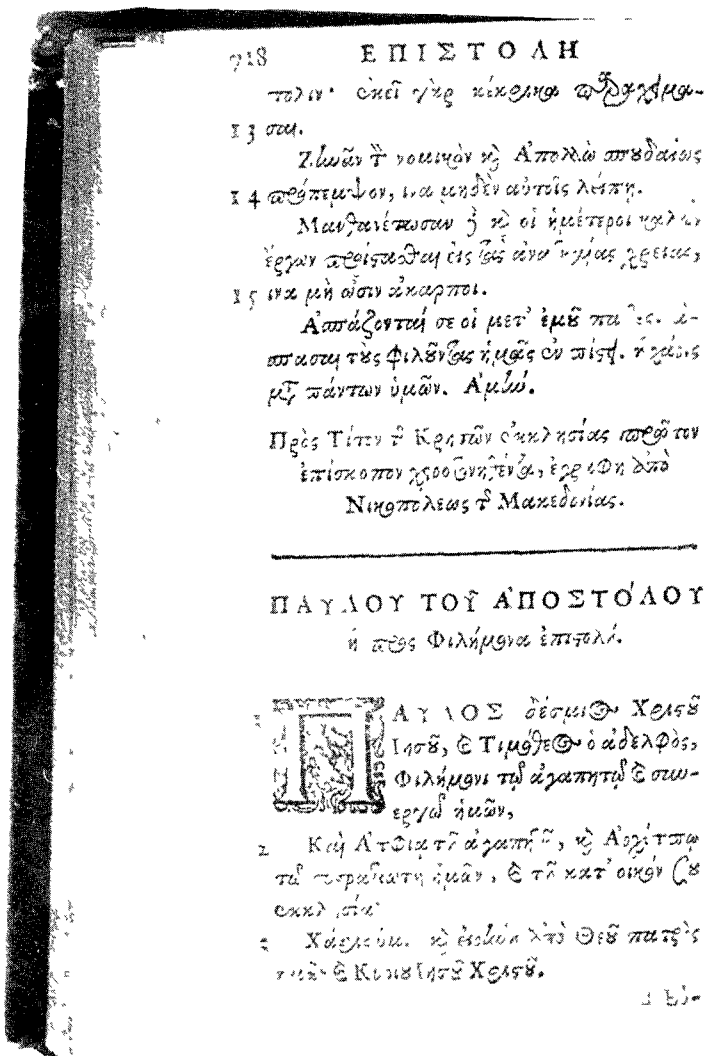 718 ΕΠΙΣΤΟΛΗ
πολιν· ἐκεῖ γὰρ κέκρικα παραχειμά-
13 σαι.
Ζηνᾶν τὸν νομικὸν καὶ Ἀπολλὼ σπουδαίως
14 πρόπεμψον, ἵνα μηδὲν αὐτοῖς λείπῃ.
Μανθανέτωσαν δὲ καὶ οἱ ἡμέτεροι καλῶν
ἔργων προΐστασθαι εἰς τὰς ἀναγκαίας χρείας,
15 ἵνα μὴ ὦσιν ἄκαρποι.
Ἀσπάζονταί σε οἱ μετ' ἐμοῦ πάντες. ἄ-
σπασαι τοὺς φιλοῦντας ἡμᾶς ἐν πίστει. ἡ χάρις
μετὰ πάντων ὑμῶν. Ἀμήν.
Πρὸς Τίτον τῆς Κρητῶν ἐκκλησίας πρῶτον
ἐπίσκοπον χειροτονηθέντα, ἐγράφη ἀπὸ
Νικοπόλεως τῆς Μακεδονίας.
ΠΑΥΛΟΥ ΤΟΥ͂ ἈΠΟΣΤΌΛΟΥ
ἡ πρὸς Φιλήμονα ἐπιστολή.
ΠΑΥΛΟΣ δέσμιος Χριστοῦ
Ἰησοῦ, καὶ Τιμόθεος ὁ ἀδελφὸς,
Φιλήμονι τῷ ἀγαπητῷ καὶ συν-
εργῷ ἡμῶν,
2 Καὶ Ἀπφίᾳ τῇ ἀγαπητῇ, καὶ Ἀρχίππῳ
τῷ συστρατιώτῃ ἡμῶν, καὶ τῇ κατ' οἶκόν σου
ἐκκλησίᾳ·
3 Χάρις ὑμῖν καὶ εἰρήνη ἀπὸ Θεοῦ πατρὸς
ἡμῶν καὶ Κυρίου Ἰησοῦ Χριστοῦ.